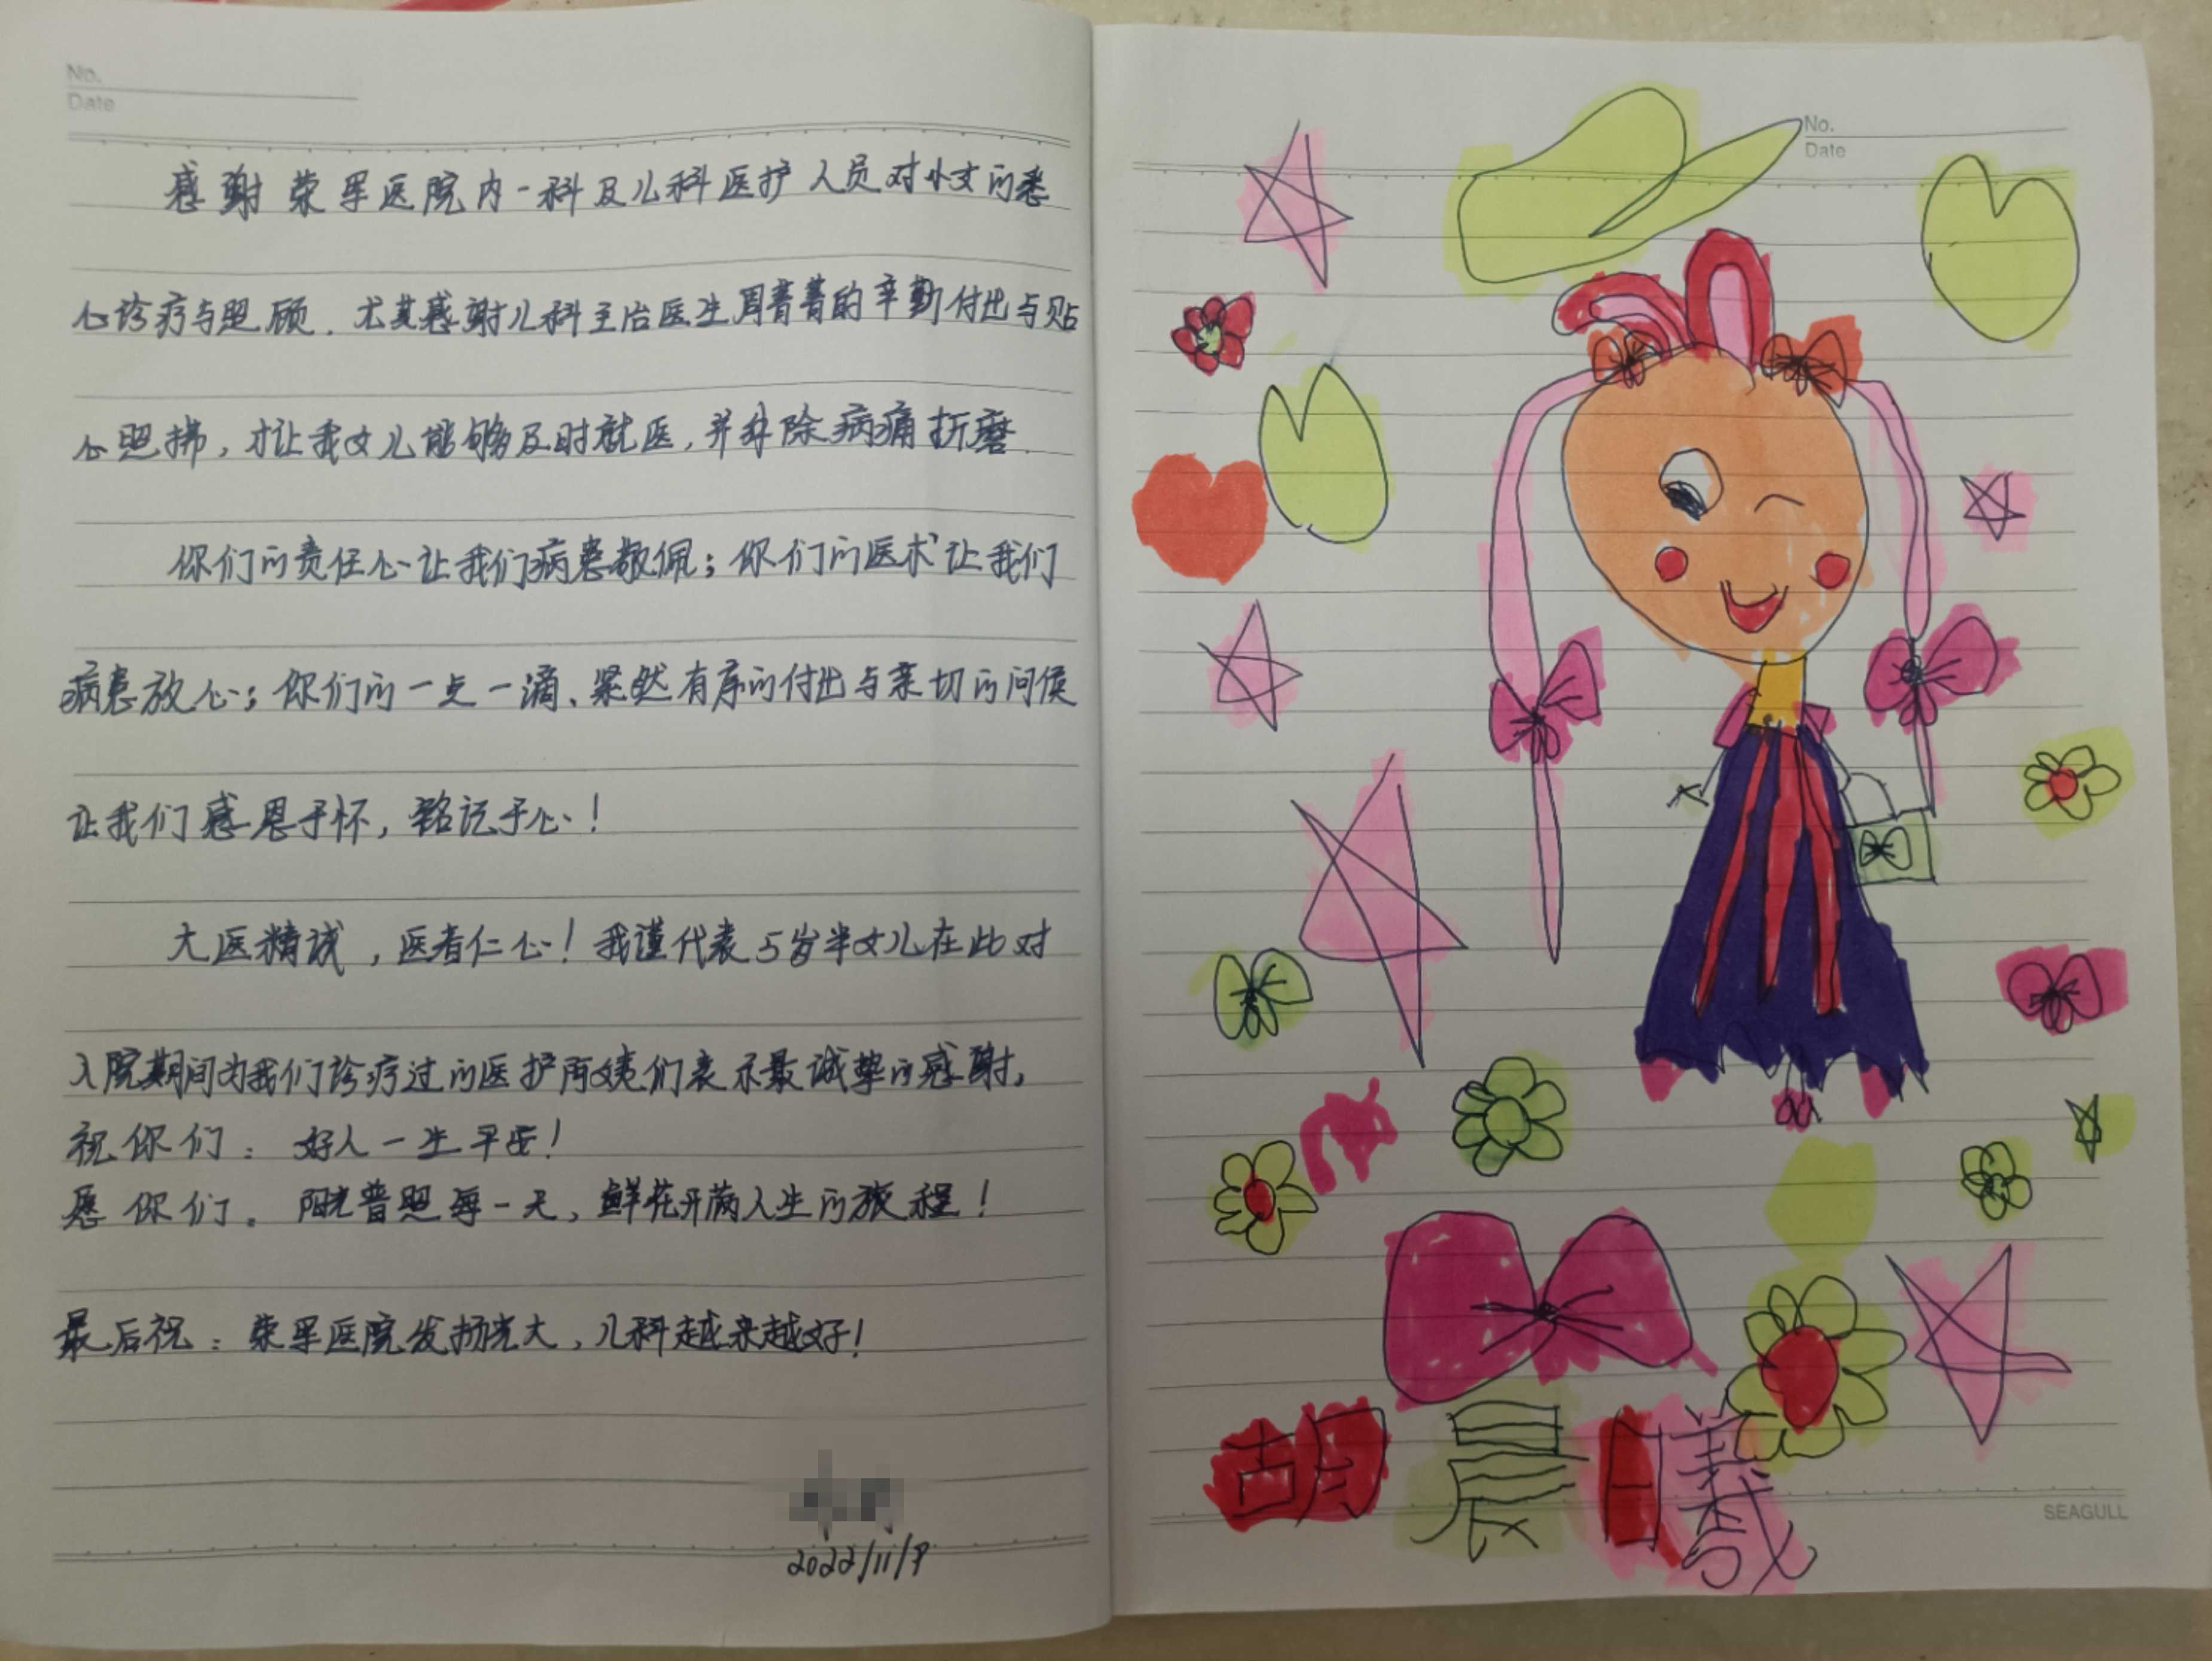 No.
Date
感谢荣军医院内一科及儿科医护人员对小女的悉
心诊疗与照顾.尤其感谢儿科主治医生周菁菁的辛勤付出与贴
心照拂,才让我女儿能够及时就医,并排除病痛折磨.
你们的责任心让我们病患敬佩;你们的医术让我们
病患放心;你们的一点一滴、紧然有序的付出与亲切的问候
让我们感恩于怀,铭记于心!
大医精诚,医者仁心!我谨代表5岁半女儿在此对
入院期间为我们诊疗过的医护阿姨们表示最诚挚的感谢,
祝你们:好人一生平安!
愿你们。阳光普照每一天,鲜花开满人生的旅程!
最后祝:荣军医院发扬光大,儿科越来越好!
2022/11/9
No.
Date
胡晨曦
SEAGULL